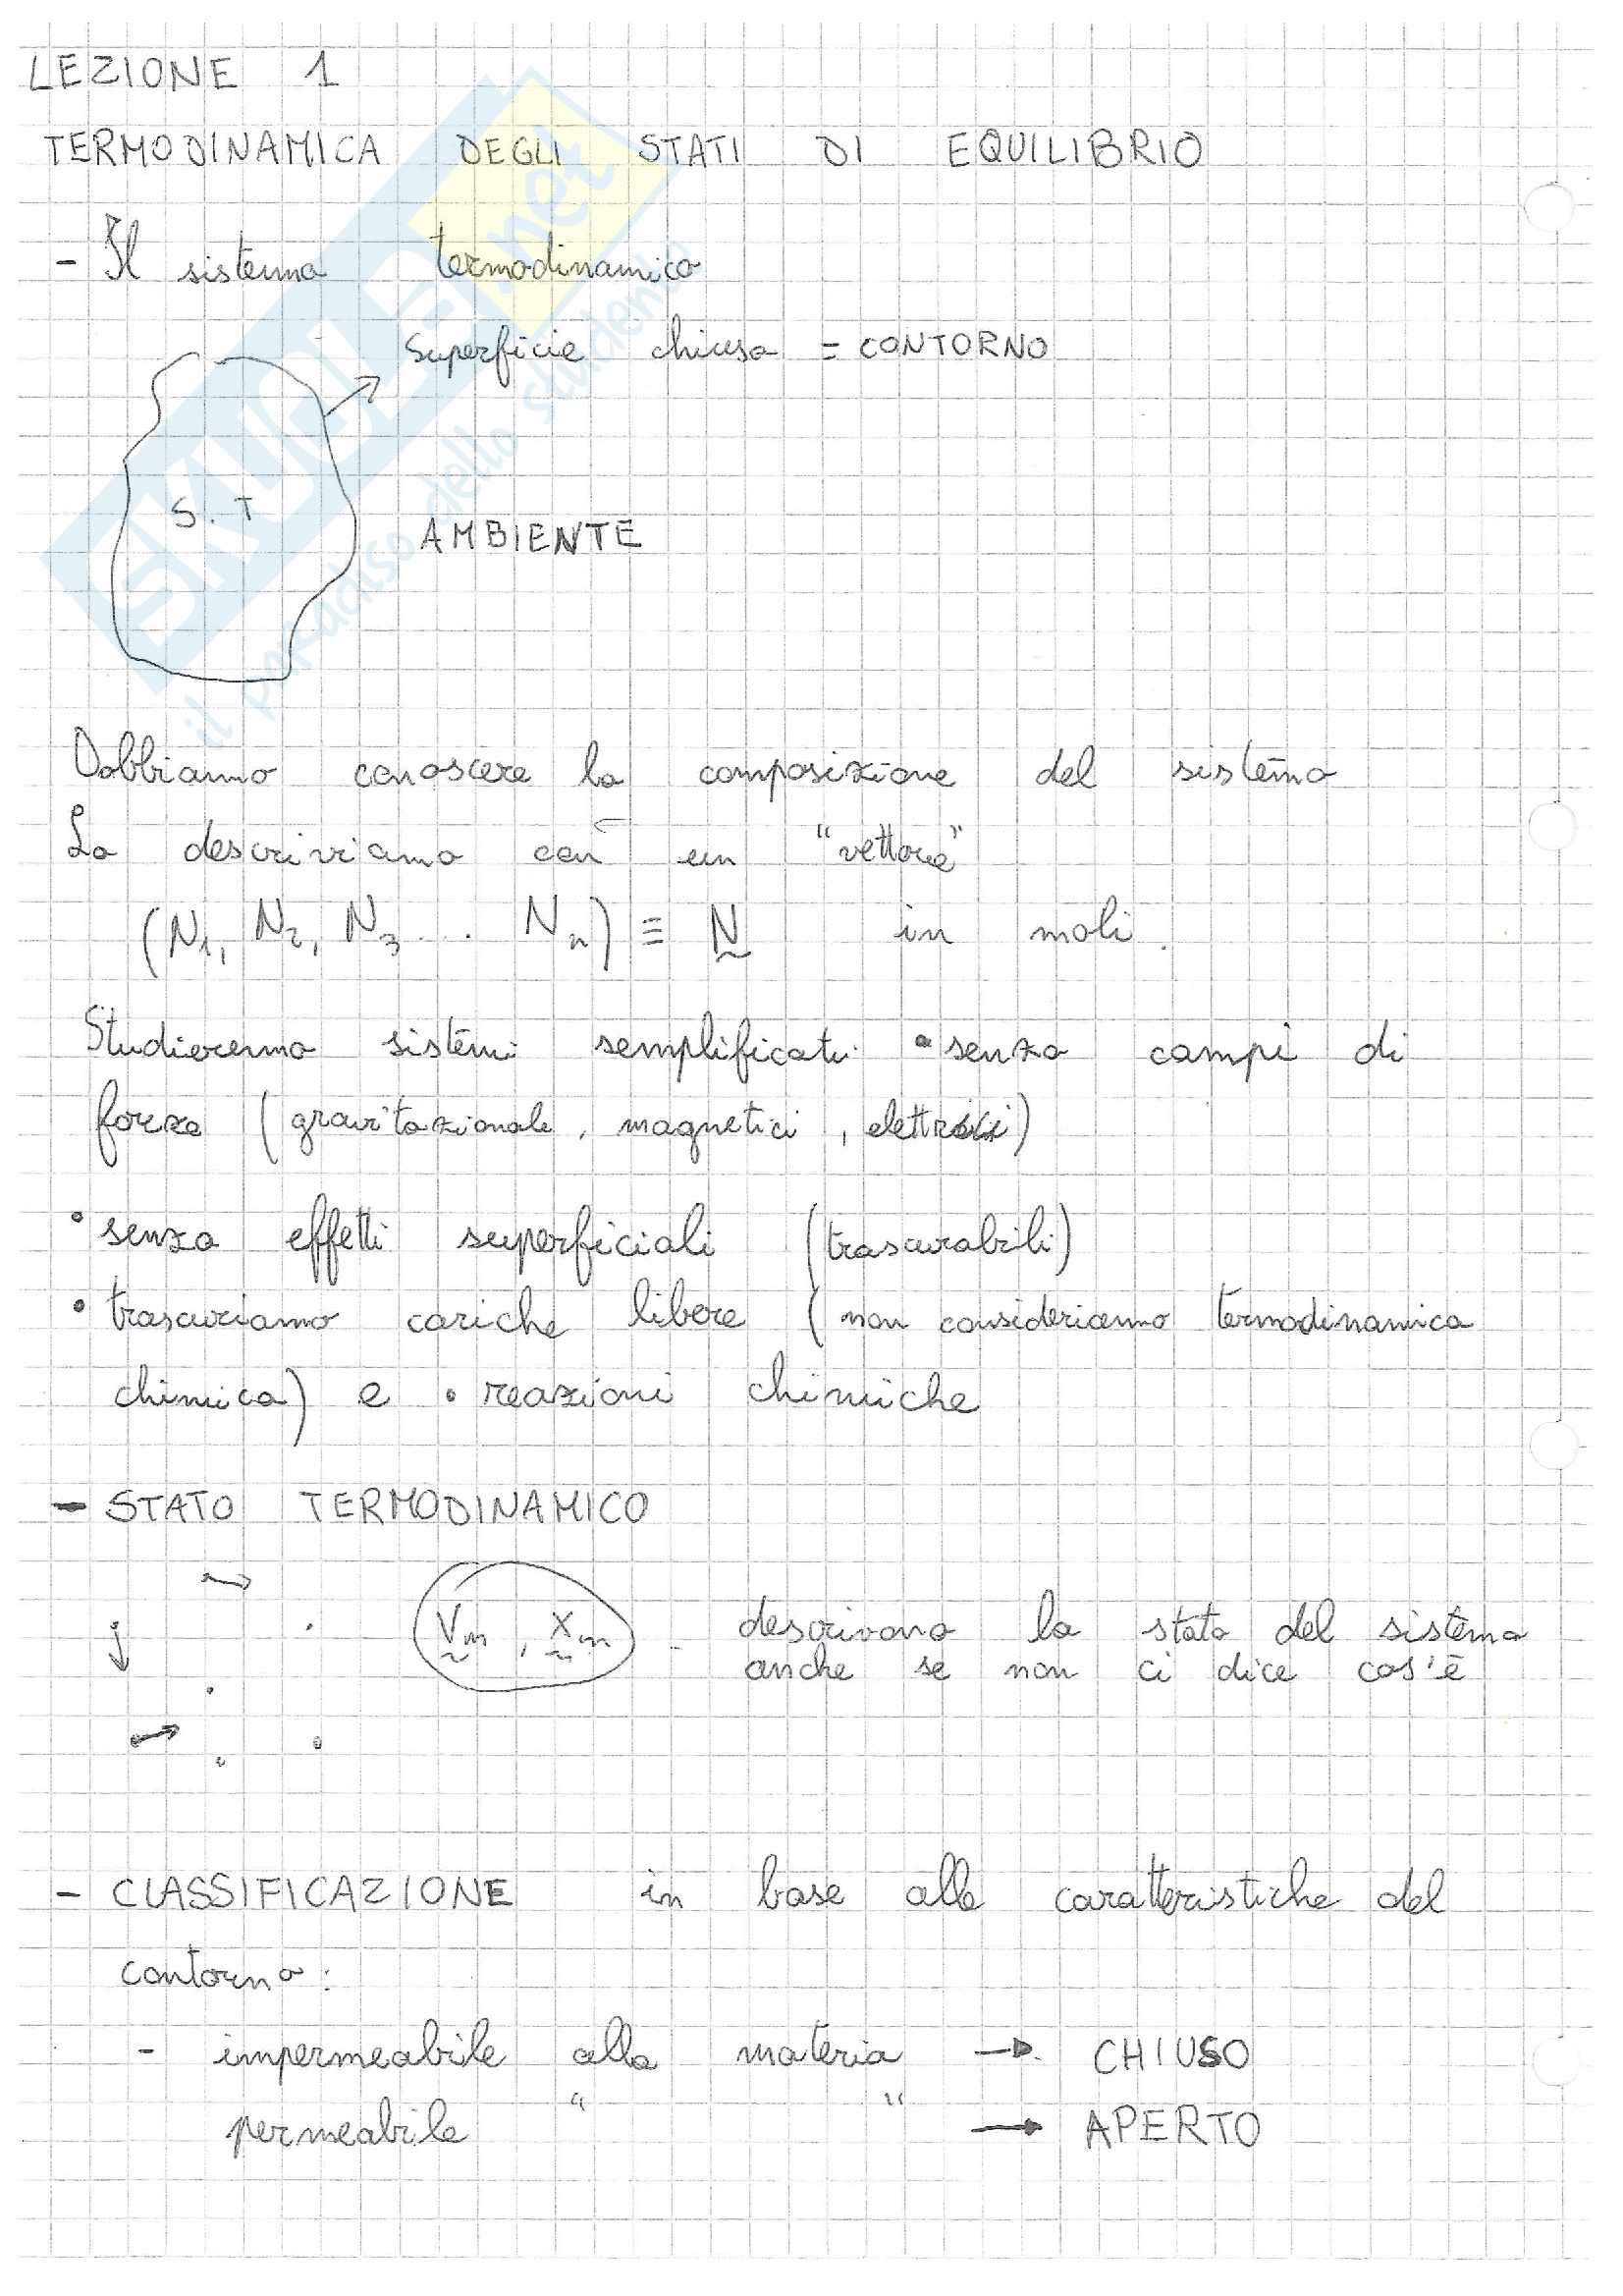 LEZIONE 1
TERMODINAMICA DEGLI STATI DI EQUILIBRIO
- Il sistema termodinamico
Superficie chiusa = CONTORNO
S. T
AMBIENTE
Dobbiamo conoscere la composizione del sistema
La descriviamo con un "vettore"
(N1, N2, N3 ... Nn) ≡ N in moli.
Studieremo sistemi semplificati: • senza campi di
forza (gravitazionale, magnetici, elettrici)
• senza effetti superficiali (trascurabili)
• trascuriamo cariche libere (non consideriamo termodinamica
chimica) e • reazioni chimiche
- STATO TERMODINAMICO
Vm, Xm descrivono lo stato del sistema
anche se non ci dice cos'è
- CLASSIFICAZIONE in base alle caratteristiche del
contorno:
- impermeabile alla materia → CHIUSO
permeabile " " → APERTO
SKUOLA.net
il paradiso dello studente